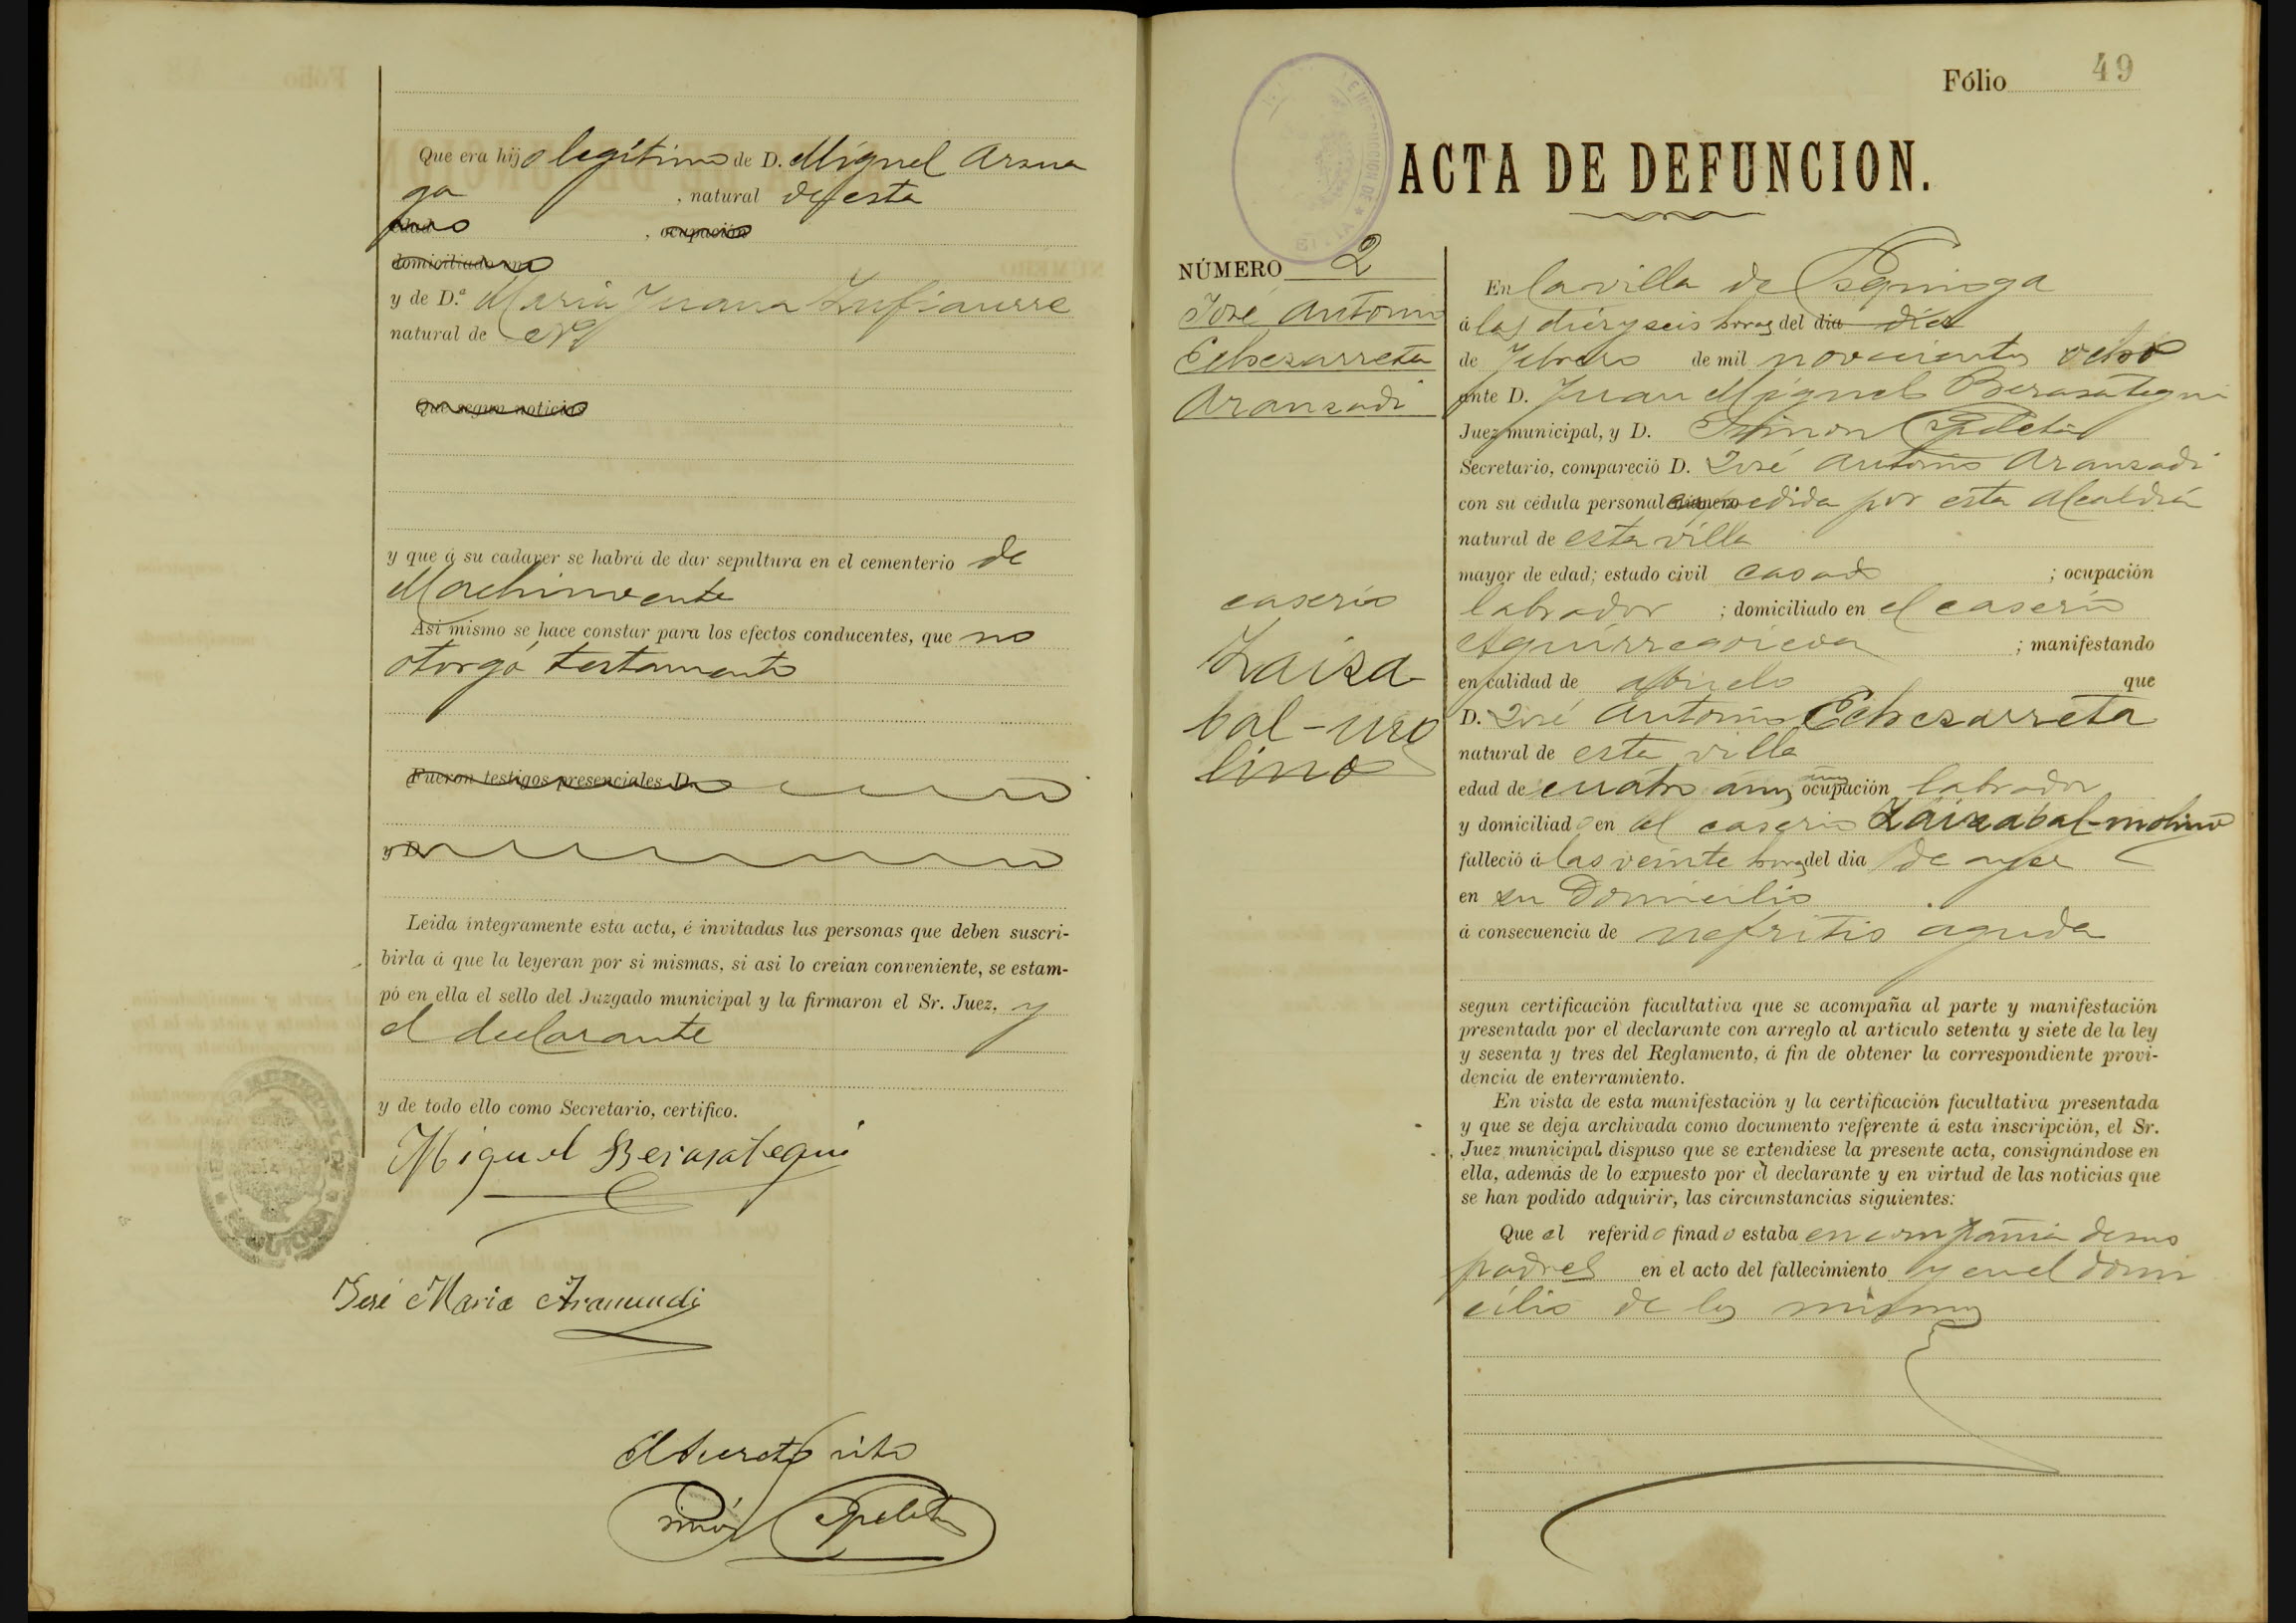 Que era hijo legítimo de D. Miguel Arsua
ga, natural de esta
edad, ocupación
domiciliado en
y de D.ª Maria Juana Zufiaurre
natural de id
Que segun noticias
y que á su cadaver se habrá de dar sepultura en el cementerio de
Machinvente
Asi mismo se hace constar para los efectos conducentes, que no
otorgó testamento
Fueron testigos presenciales D.
y D.
Leida integramente esta acta, é invitadas las personas que deben suscri-
birla á que la leyeran por si mismas, si asi lo creian conveniente, se estam-
pó en ella el sello del Juzgado municipal y la firmaron el Sr. Juez, y
el declarante
y de todo ello como Secretario, certifico.
Miguel Berasategui
José Maria Aramendi
El Secretario
Simón Apeletu
Fólio 49
ACTA DE DEFUNCION.
NÚMERO 2
José Antonio
Echezarreta
Aranzadi
caserio
Zaiza
bal-uro
lino
En la villa de
á las diez y seis horas del dia diez
de Febrero de mil novecientos ocho
ante D. Juan Miguel Berasategui
Juez municipal, y D. Simon
Secretario, compareció D. José Antonio Aranzadi
con su cédula personal número expedida por esta Alcaldía
natural de esta villa
mayor de edad; estado civil casado; ocupación
labrador; domiciliado en el caserio
Aguirregoicoa; manifestando
en calidad de abuelo que
D. José Antonio Echezarreta
natural de esta villa
edad de cuatro años ocupación labrador
y domiciliado en el caserio Zaizabal-molino
falleció á las veinte horas del dia de ayer
en su Domicilio
á consecuencia de nefritis aguda
segun certificación facultativa que se acompaña al parte y manifestación
presentada por el declarante con arreglo al artículo setenta y siete de la ley
y sesenta y tres del Reglamento, á fin de obtener la correspondiente provi-
dencia de enterramiento.
En vista de esta manifestación y la certificación facultativa presentada
y que se deja archivada como documento referente á esta inscripción, el Sr.
Juez municipal dispuso que se extendiese la presente acta, consignándose en
ella, además de lo expuesto por el declarante y en virtud de las noticias que
se han podido adquirir, las circunstancias siguientes:
Que el referido finado estaba en compañia de sus
padres en el acto del fallecimiento y en el domi
cilio de los mismos